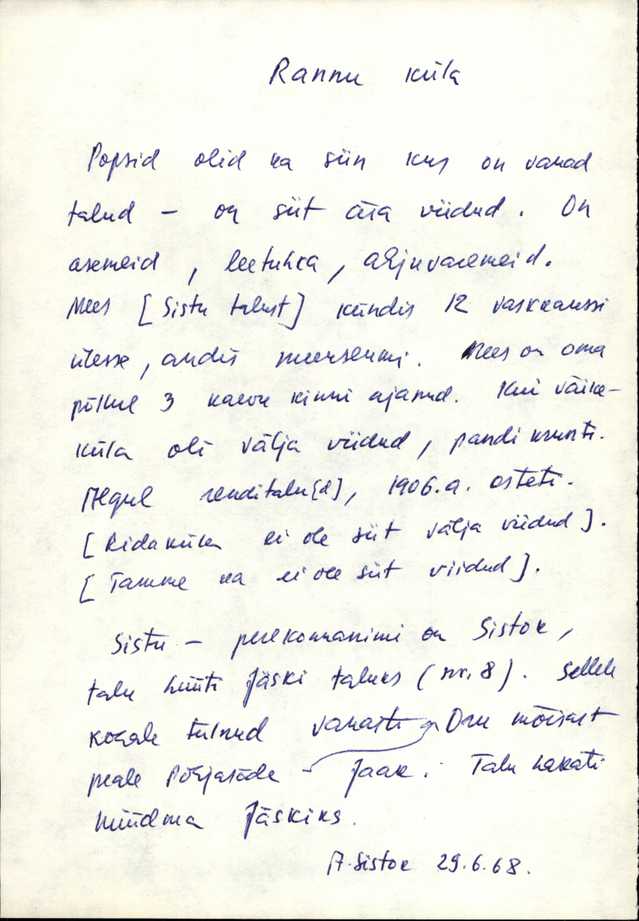 Rannu küla
Popsid olid ka siin kus on vanad
talud – on siit ära viidud. On
asemeid, leetuhka, ahjuvaremeid.
Mees [Sistu talust] kündis 12 vaskraussi
ülesse, andis muuseumi. Mees on oma
põllul 3 kaevu kinni ajanud. Kui väike-
küla oli välja viidud, pandi krunti.
Algul renditalu[d], 1906.a. osteti.
[Ridaküla ei ole siit välja viidud].
[Tamme ka ei ole siit viidud].
Sistu – perekonnanimi on Sistok,
talu hüüti Jäski taluks (nr. 8). Sellele
kohale tulnud vanasti Oru mõisast
peale Põhjasõda – Jaak. Talu hakati
hüüdma Jäskiks.
A. Sistok 29.6.68.